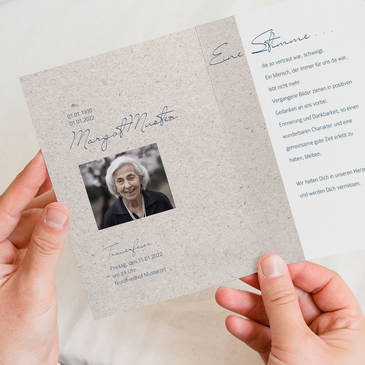 01.01.1930
01.01.2022
Margot Muster
Trauerfeier
Freitag, den 15.01.2022
um 24 Uhr
Nordfriedhof Musterort
Eine Stimme . . .
die so vertraut war, schweigt.
Ein Mensch, der immer für uns da war,
lebt nicht mehr.
Vergangene Bilder ziehen in positiven
Gedanken an uns vorbei.
Erinnerung und Dankbarkeit, so einen
wunderbaren Charakter und eine
gemeinsame gute Zeit erlebt zu
haben, bleiben.
Wir halten Dich in unseren Herze
und werden Dich vermissen.